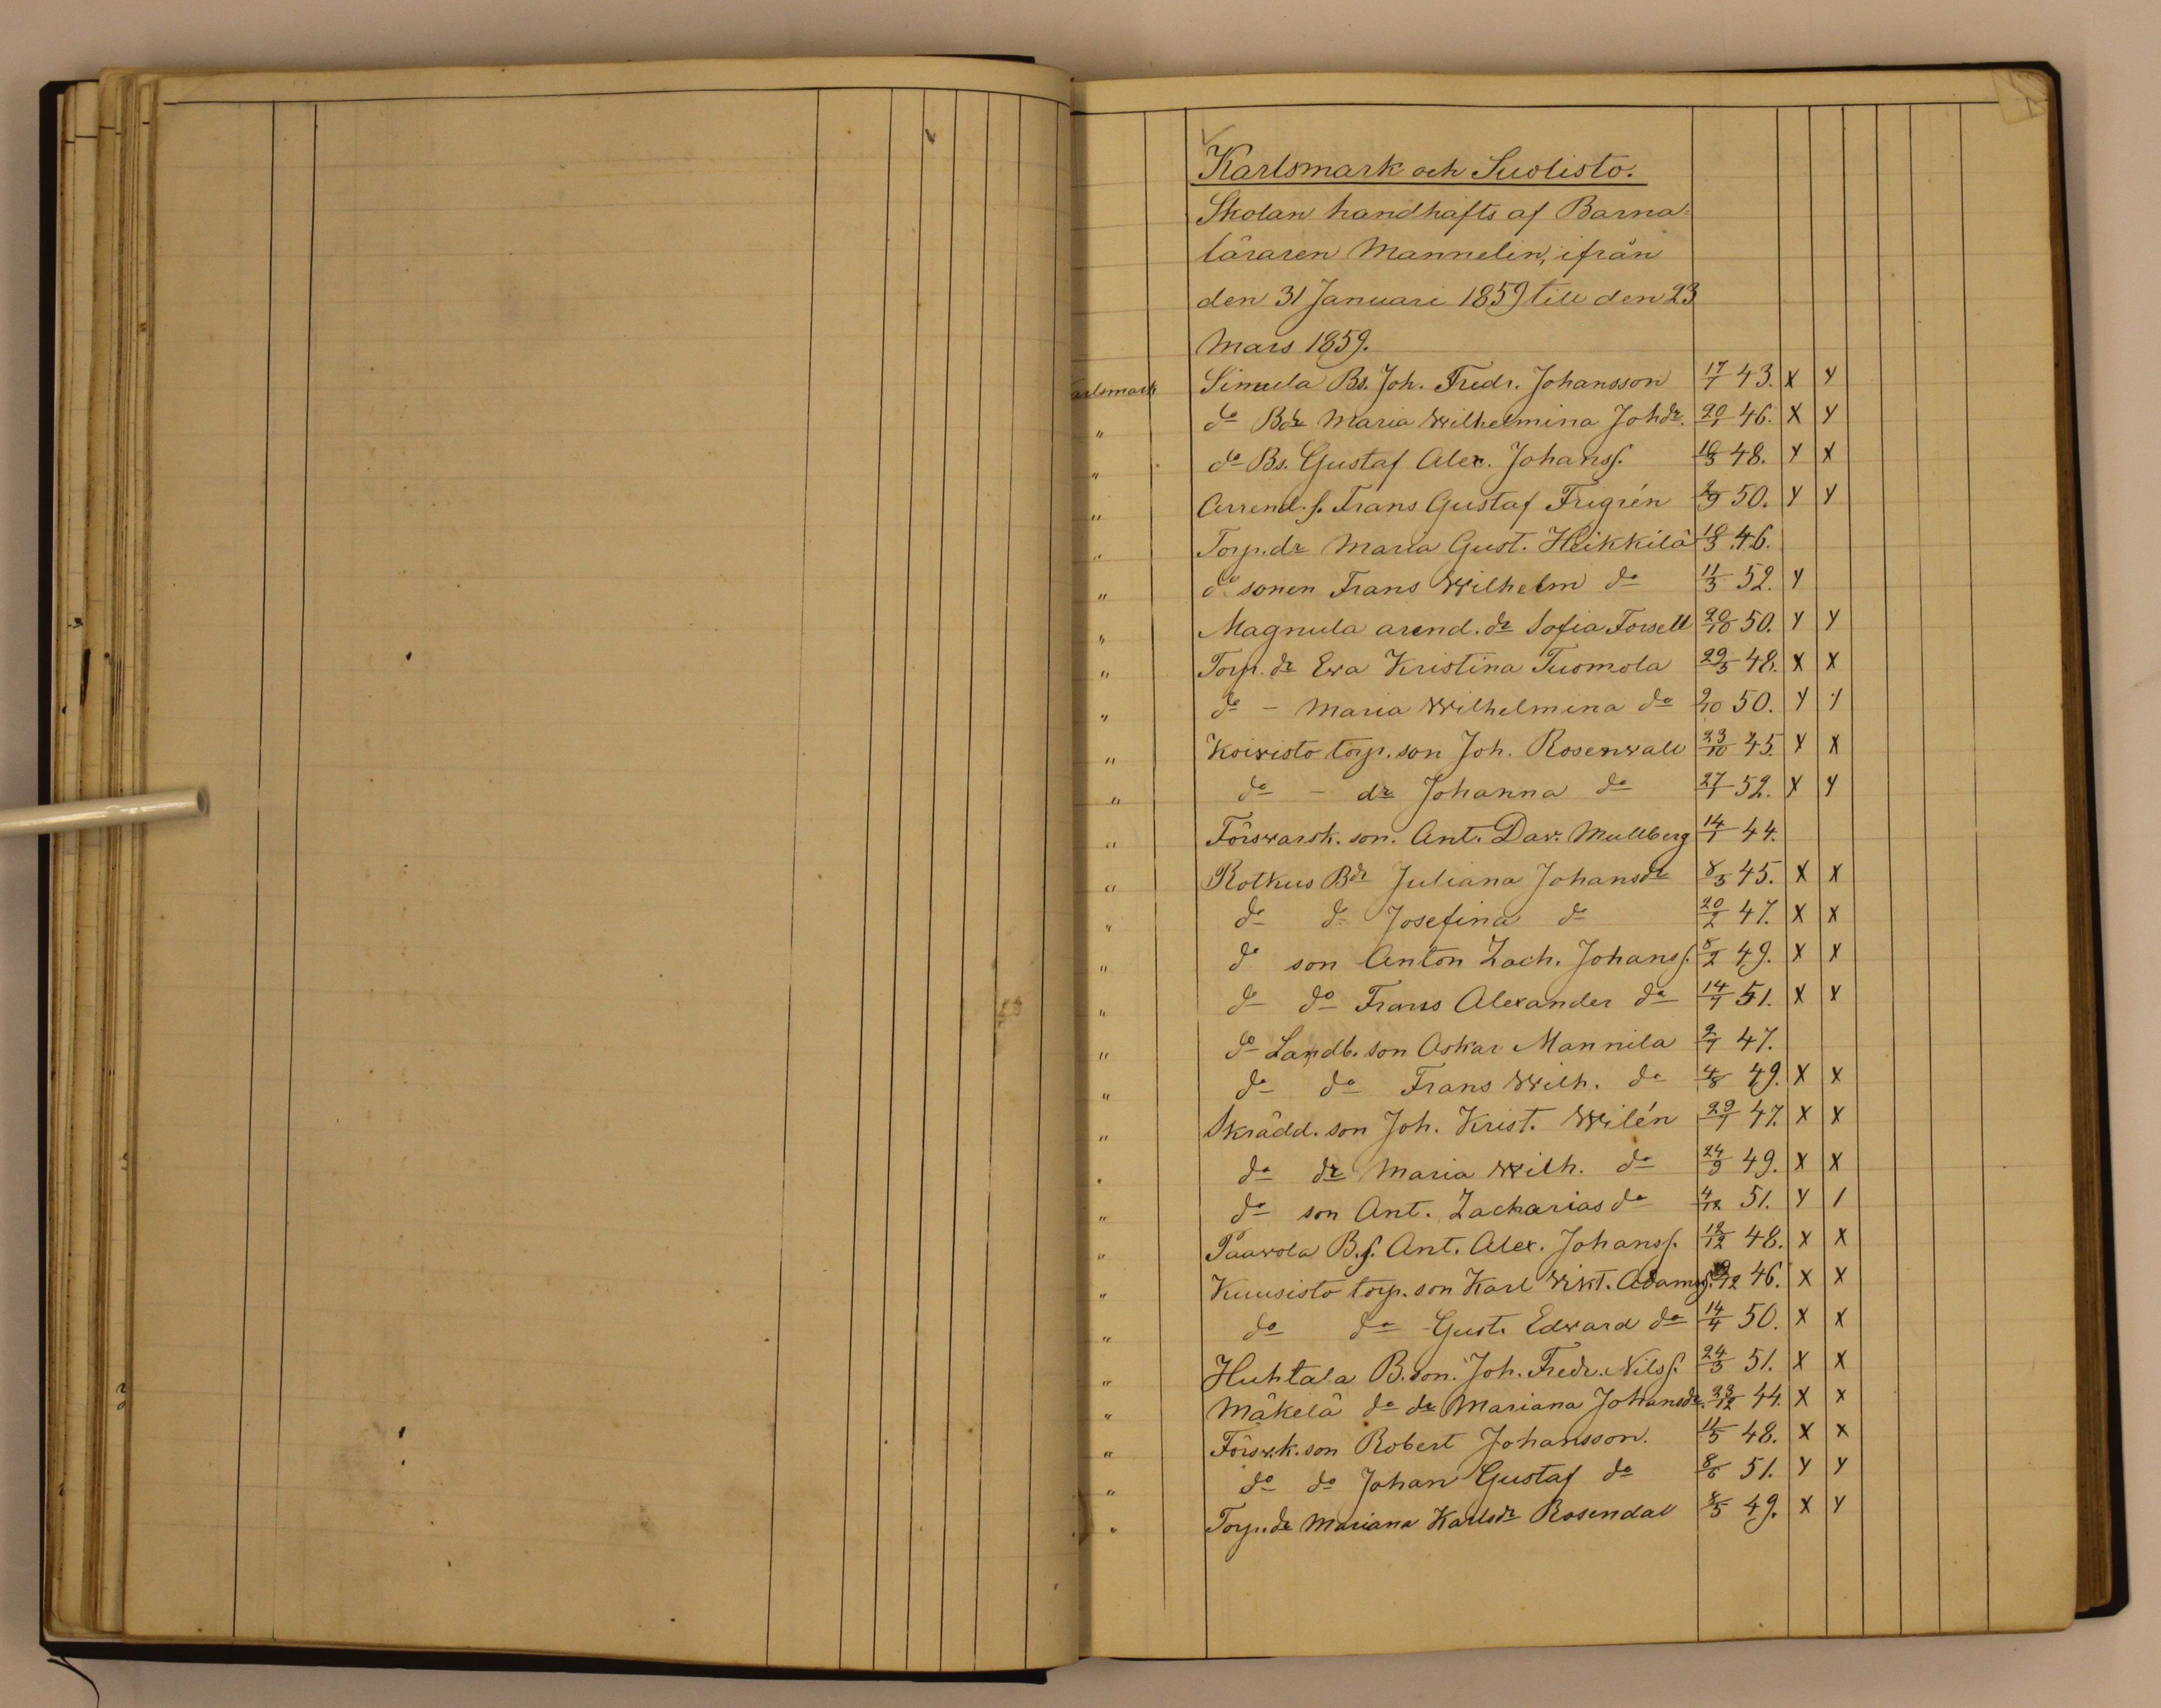 Karlsmark och Suolisto.
Skolan handhafts af Barna-
läraren Mannelin, ifrån
den 31 Januari 1859 till den 23
Mars 1859.
Karlsmark Simula Bs. Joh. Fredr. Johansson 17/1 43. X Y
" do Bdr Maria Wilhelmina Johdr. 20/1 46. X Y
" do Bs. Gustaf Alex. Johanss. 18/3 48. Y X
" Arrend. s. Frans Gustaf Frigrén 50. Y Y
" Torp. dr Maria Gust. Heikkilä 18/3 46.
" do sonen Frans Wilhelm do 11/3 52. Y
" Magnula arend. dr Sofia Forsell 20/10 50. Y Y
" Torp. dr Ewa Kristina Tuomola 29/5 48. X X
" do - Maria Wilhelmina do 2/10 50. Y Y
" Koivisto torp. son Joh. Rosenwall 23/10 45. Y X
" do - dr Johanna do 27/1 52. Y Y
" Förswarsk. son. Ant. Dav. Mullberg 14/1 44.
" Rotkus Bdr Juliana Johansdr 8/3 45. X X
" do do Josefina do 20/2 47. X X
" do son Anton Zach. Johanss. 5/2 49. X X
" do do Frans Alexander do 14/7 51. X Y
" do Landb. son Oskar Mannila 2/7 47.
" do do Frans Wilh. do 4/8 49. X X
" Skrädd. son Joh. Krist. Wilén 29/7 47. X X
" do dr Maria Wilh. do 24/9 49. X X
" do son Ant. Zacharias do 4/12 51. Y /
" Paavola B.s. Ant. Alex. Johanss. 12/12 48. X X
" Kuusisto torp. son Karl Wikt. Adamss. 46. X X
" do do Gust. Edvard do 14/4 50. X X
" Huhtala B. son. Joh. Fredr. Nilss. 24/3 51. X X
" Mäkelä do dr Mariana Johansdr. 23/12 44. X X
" Försv.k. son Robert Johansson. 11/5 48. X X
" do do Johan Gustaf do 8/6 51. Y Y
" Torp. dr Mariana Karlsdr Rosendal 8/5 49. X Y